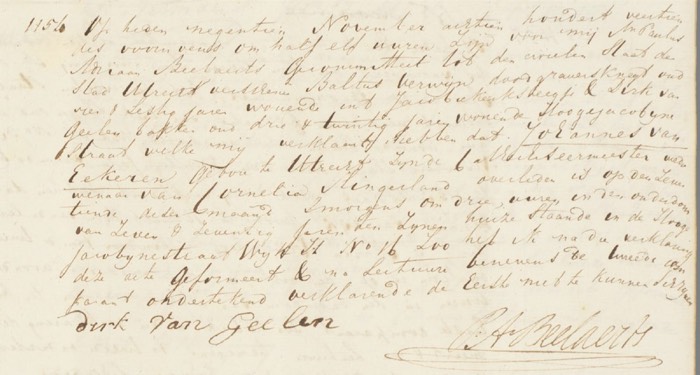 1154 Op heden negentien November achtien hondert veertien
des voormiddags om half elf uuren Zyn voor mij Mr Paulus
Adriaan Beelaerts Gecommitteert tot den Civielen Staat der
Stad Utrecht verscheenen Baltus Verwijn doodgraversknegt oud
vier & Zestig Jaren wonende int Jacobikerksteegje & Dirk van
Geelen bakker oud drie & twintig Jaren wonende Hoogejacobyn
straat welke mij verklaart hebben dat Johannes van
Eekeren Geboore te Utrecht Zynde Meester wede
wenaar van Cornelia Slingerland overleden is op den Zeven
tiende dezer maand smorgens om drie uuren in den ouderdom
van Zeven & Zeventig Jaren den Zynen huize staande in de Hooge
Jacobynestraat Wyk H No 16 Zoo heb ik na die verklaring
deze acte Geformeert & na Lectuure benevens de tweede com
parant ondertekend verklarende de Eerste niet te kunnen Schryven
dirk van Geelen
P. A. Beelaerts